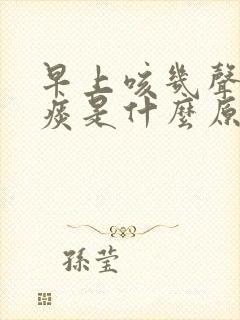 早上咳幾聲
痰是什麼原
孫莹